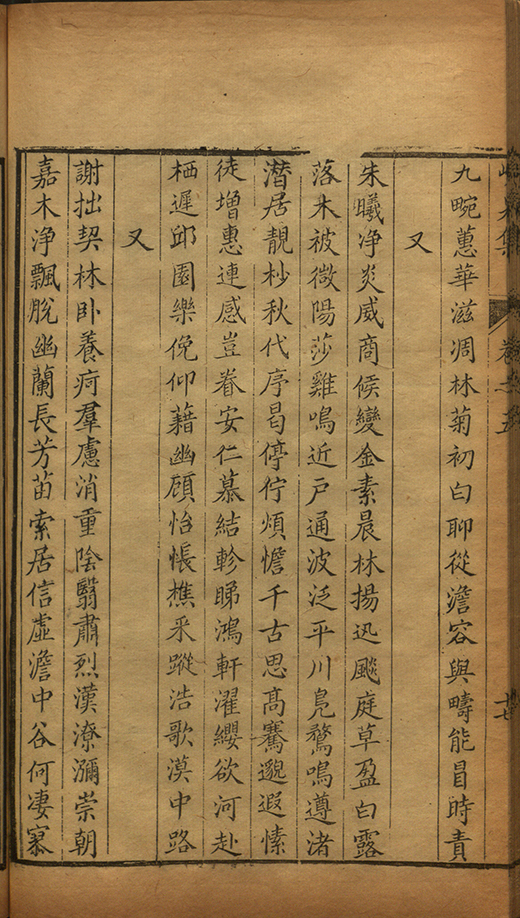 九畹蕙華滋凋林菊初白聊從澹容與疇能冒時責
又
朱曦净炎威商候變金素晨林揚迅飈庭草盈白露
落木被微陽莎雞鳴近戶通波泛平川鳧鶩鳴遵渚
潛居靚杪秋代序曷停佇煩憺千古思高騫邈遐愫
徒增惠連感豈眷安仁慕結軫睇鴻軒濯纓欲河赴
栖遲邱園樂俛仰藉幽顧怡悵樵采蹤浩歌漠中路
又
謝拙契林卧養疴羣慮消重陰翳肅烈漢潦瀰崇朝
嘉木净飄脫幽蘭長芳苗索居信虛澹中谷何凄寡